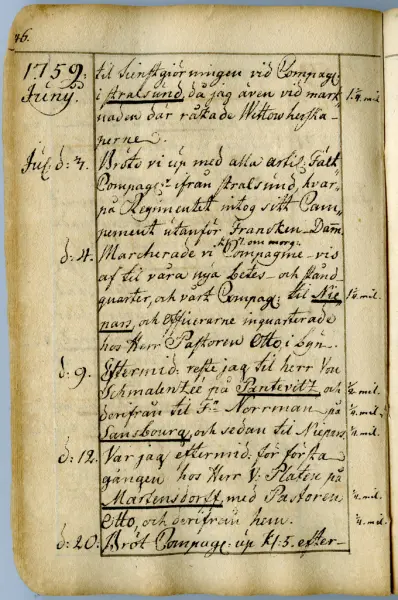 46.
1759. til tienstgiörningen vid Compag:
Junÿ. i Stralsund, då jag även vid mark 1¼. mil.
naden där råkade Wittow herska-
perne.
Jul. d: 1. Bröto vi up med alla Artil: Fält
Compag:r ifrån Stralsund, hvar-
på Regimentet intog sitt Cam-
pement utanför Francken-Dam
kl. 7. om morg:
d: 4. Marcherade vi Compagnie-vis
af til våra nya Betes- och stånd
quarter, och vårt Compag: til Nie 1¼. mil.
pars, och officerarne inquarterade
hos Herr Pastoren Otto i byn.
d: 9. Eftermid: reste jag til herr Von
Schmalentzé på Pantevitz och ½. mil.
derifrån til F:n Norrman på ¼. mil.
Lansbourg, och sedan til Niepars ¼. mil.
d: 12. Var jag eftermid: för första
gången hos Herr V: Platen på
Martensdorff med Pastoren ¼. mil.
Otto, och derifrån hem. ¼. mil.
d: 20: Bröt Compag: up kl: 5. efter-